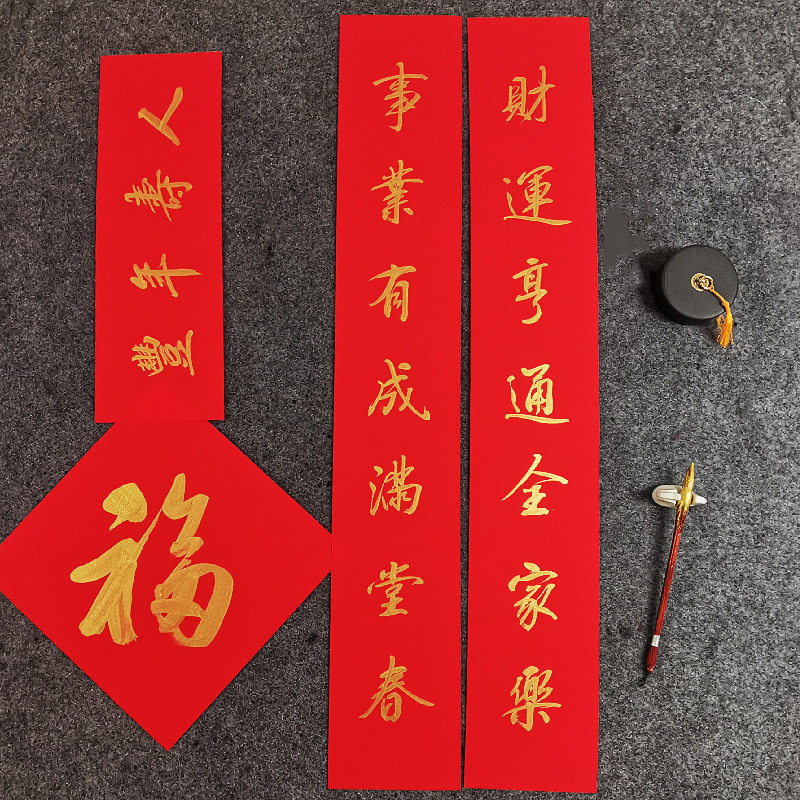 財運亨通全家樂
事業有成滿堂春
人壽年豐
福